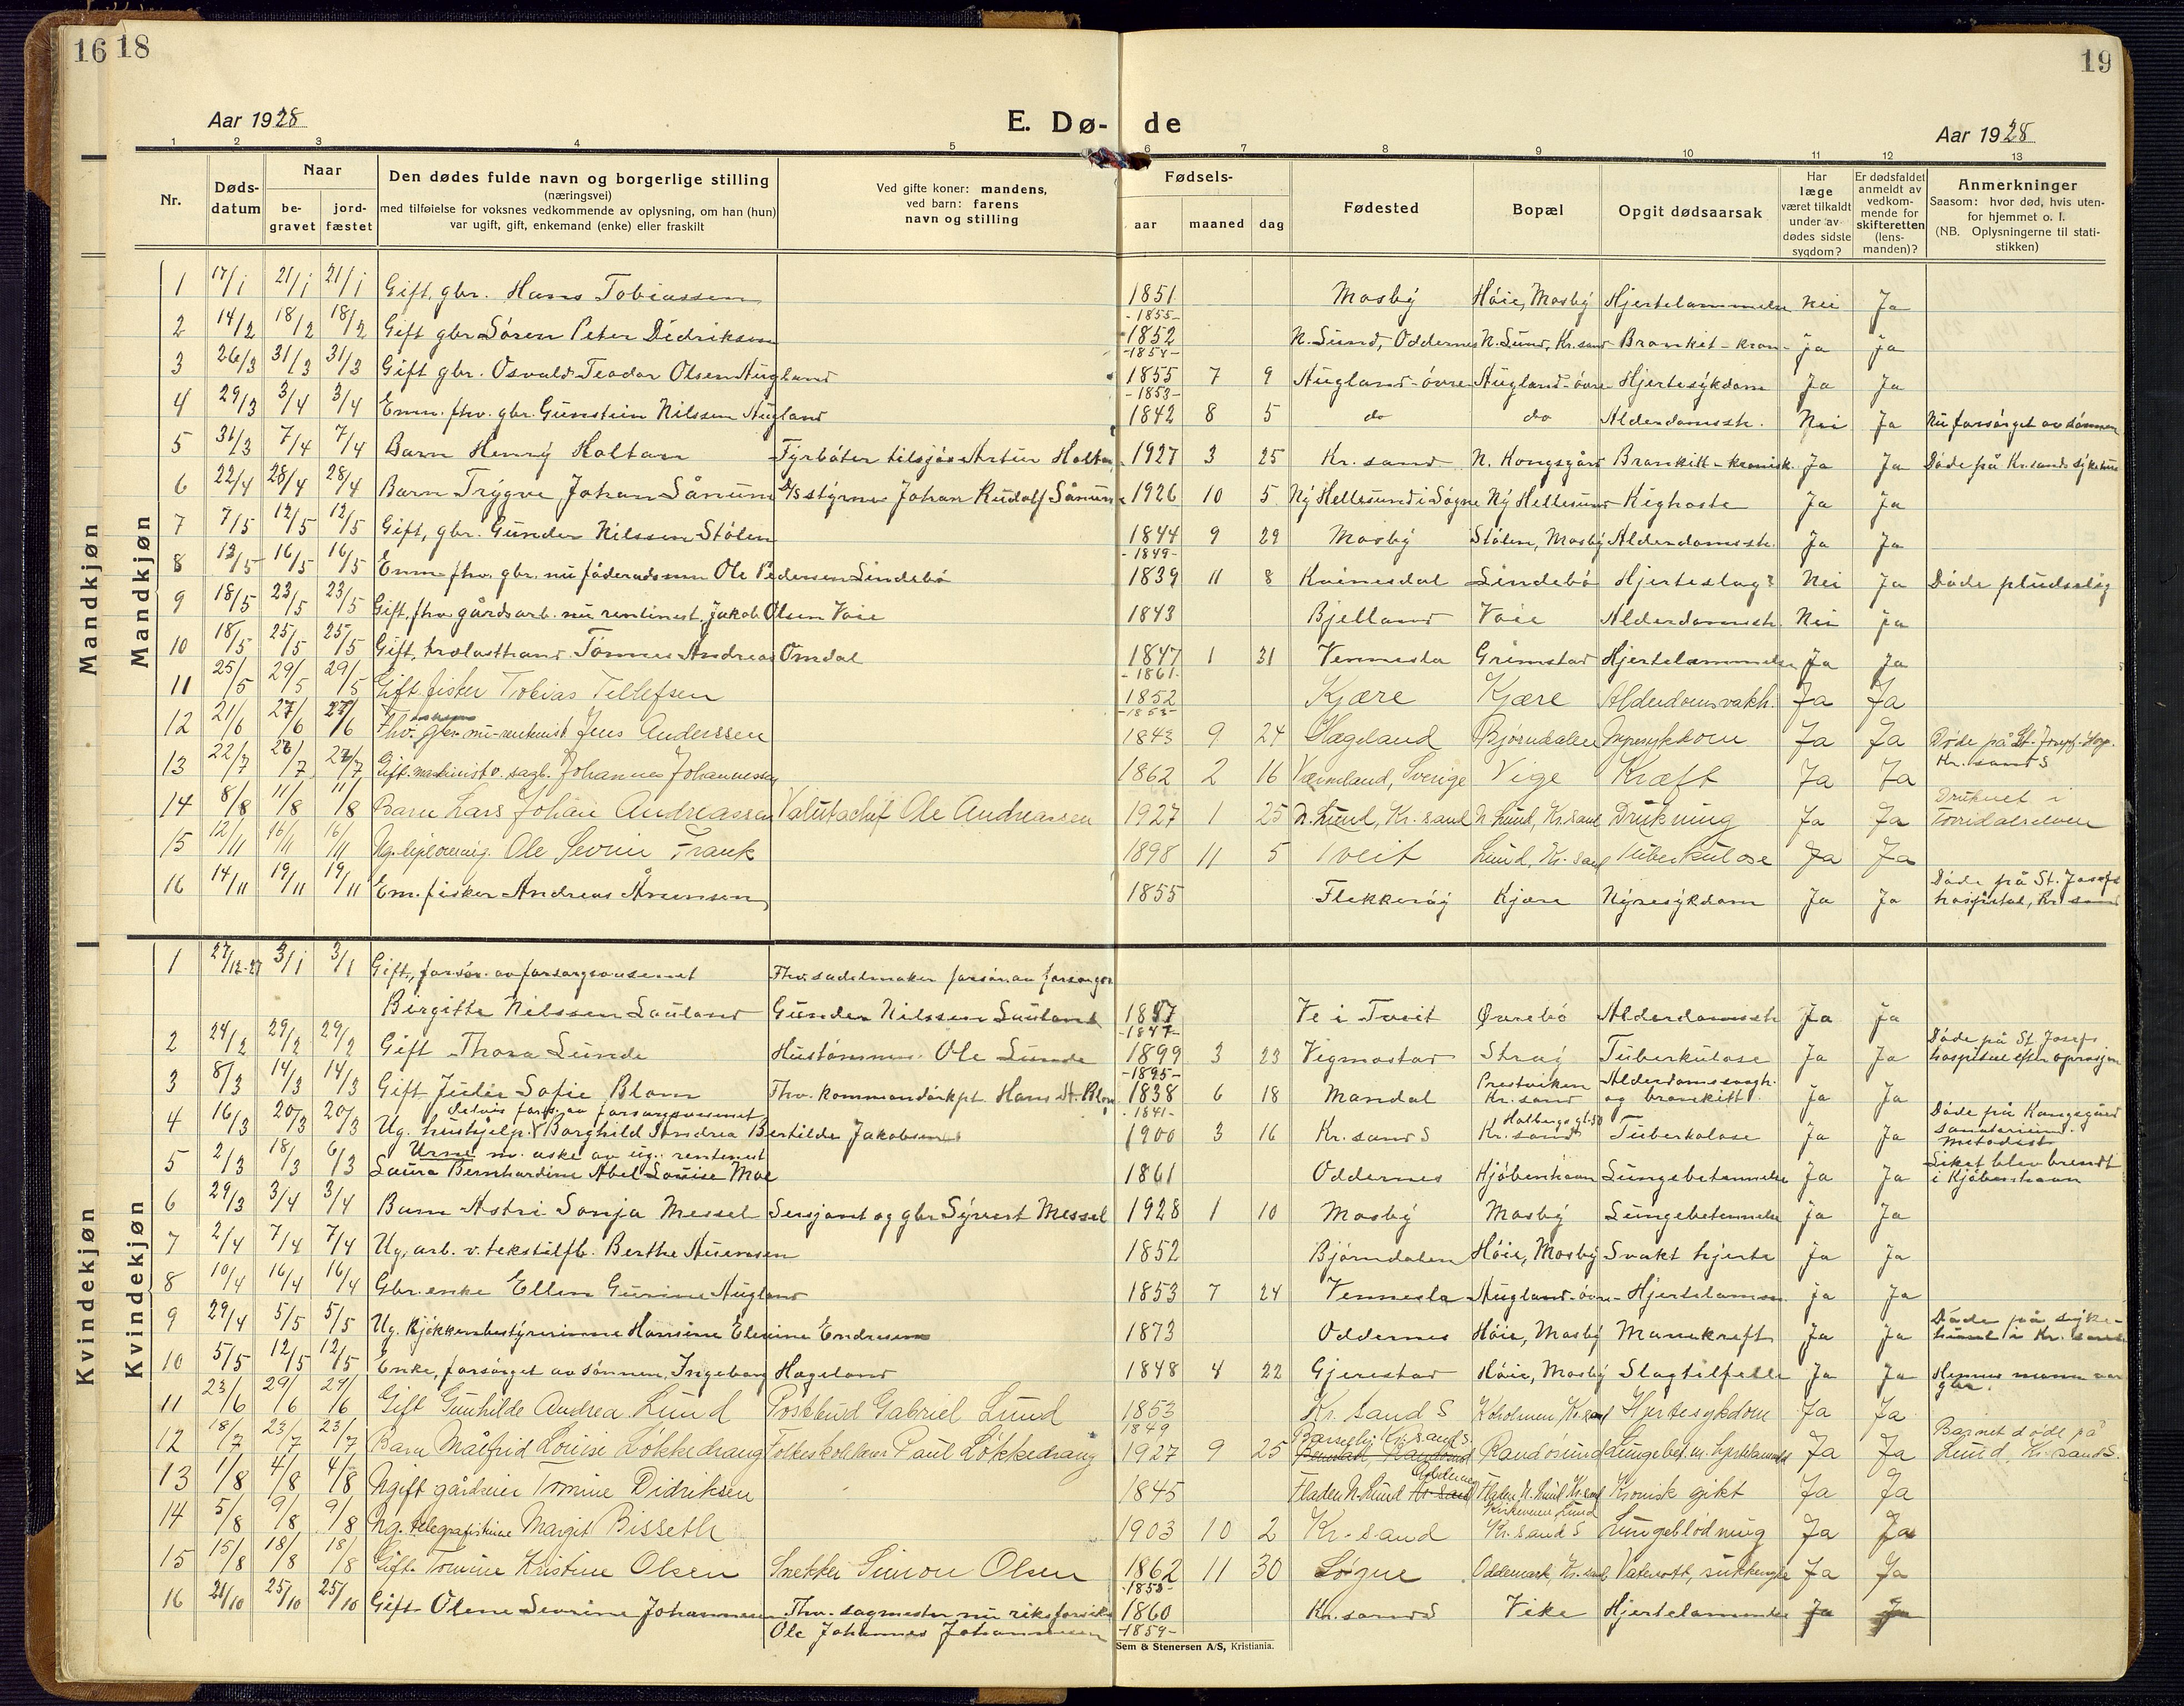 16 18
19
Aar 1928
E. Dø- de
Aar 1928
1 2 3 4 5 6 7 8 9 10 11 12 13
Nr.
Døds-
datum
Naar
be-
gravet
jord-
fæstet
Den dødes fulde navn og borgerlige stilling
(næringsvei)
med tilføielse for voksnes vedkommende av oplysning, om han (hun)
var ugift, gift, enkemand (enke) eller fraskilt
Ved gifte koner: mandens,
ved barn: farens
navn og stilling
Fødsels-
aar maaned dag
Fødested
Bopæl
Opgit dødsaarsak
Har
læge
været tilkaldt
under av-
dødes sidste
sygdom?
Er dødsfaldet
anmeldt av
vedkom-
mende for
skifteretten
(lens-
manden)?
Anmerkninger
Saasom: hvor død, hvis uten-
for hjemmet o. l.
(NB. Oplysningerne til stati-
stikken)
Mandkjøn
Mandkjøn
1 17/1 21/1 21/1 Gift, gbr. Hans Tobiassen 1851 Mosby Høie, Mosby Hjertelammelse Nei Ja
-1855-
2 14/2 18/2 18/2 Gift gbr Sören Peter Didriksen 1852 N. Lund, Oddernes N. Lund, Kr.sand Bronkit-kron- ja ja
-1854-
3 26/3 31/3 31/3 Gift gbr. Osvald Teodor Olsen Augland 1855 7 9 Augland-övre Augland-övre Hjertesykdom Ja Ja
-1853-
4 29/3 3/4 3/4 Enm. fhv. gbr. Gunstein Nilssen Augland 1842 8 5 do do Alderdomssv. Nei Ja Nu forsörget av sönnen
5 31/3 7/4 7/4 Barn Henry Holtan Fyrböter tilsjös Artur Holtan 1927 3 25 Kr. sand N. Kongsgård Bronkitt-kronisk Ja Ja Döde på Kr.sands sykehus
6 22/4 28/4 28/4 Barn Trygve Johan Sånum D/S styrmann Johan Rudolf Sånum 1926 10 5 Ny Hellesund i Sögne Ny Hellesund Kighoste Ja Ja
7 7/5 12/5 12/5 Gift, gbr. Gunder Nilssen Stölen 1844 9 29 Mosby Stölen, Mosby Alderdomssv. Ja Ja
-1849-
8 13/5 16/5 16/5 Enm. fhv. gbr. nu föderådsmn Ole Pedersen Lindebö 1839 11 8 Kvinesdal Lindebö Hjerteslag? Nei Ja Döde pludselig
9 18/5 23/5 23/5 Gift, fhv. gårdsarb. nu rentenist. Jakob Olsen Voie 1843 Bjelland Voie Alderdomssv. Nei ja
10 18/5 25/5 25/5 Gift, trelasthand. Tönnes Andreas Omdal 1847 1 31 Vennesla Grimstad Hjertelammelse Ja Ja
-1861-
11 25/5 29/5 29/5 Gift fisker Tobias Tellefsen 1852 Kjære Kjære Alderdomsvakh. Ja Ja
-1853-
12 21/6 27/6 27/6 Fhv. gbr. nu rentenist Jens Anderssen 1843 9 24 Hægeland Bjørndalen Nyresykdom Ja Ja Døde på St. Josefs Hosp.
Kr.sand S
13 22/7 26/7 27/7 Gift. maskinist o. sagb. Johannes Johannessen 1862 2 16 Værmland, Sverige Vige Kræft Ja Ja
14 8/8 11/8 11/8 Barn Lars Johan Andreassen Valutachef Ole Andreassen 1927 1 25 N. Lund, Kr. sand N Lund, Kr.sand Drukning Ja Ja Druknet i
Torridalselven
15 12/11 16/11 16/11 Ug. Ole Severin Frank 1898 11 5 Tveit Lund, Kr. sand Tuberkulose Ja Ja
16 14/11 19/11 19/11 Em. fisker Andreas Årensen 1855 Flekkeröy Kjære Nyresykdom Ja Ja Döde på St. Josefs
hospital, Kr. sand
Kvindekjøn
Kvindekjøn
1 27/12-27 3/1 3/1 Gift, forsör. av forsorgsvesenet Thv. sadelmaker forsör. av forsorgsv.
Birgitte Nilssen Lauland Gunder Nilssen Lauland 1847 Ve i Tveit Øvrebö Alderdomssv Ja ja
-1847-
2 24/2 29/2 29/2 Gift Thora Lunde Hustömmer Ole Lunde 1899 3 23 Vigmostad Straj Tuberkulose Ja Ja Döde på St Josefs
hospital efter operasjon
-1895-
3 8/3 14/3 14/3 Gift Julie Sofie Blom Fhv. kommandörkpt Hans St. Blom 1838 6 18 Mandal Prestviken Kr. sand Alderdomssvagh. og bronkitt Ja Ja
-1841-
4 16/3 20/3 20/3 Ug. hushjelp. delvis fors. av forsorgsvesenet Borghild Andrea Bertilde Jakobsen 1900 3 16 Kr. sand S Holbergs gt. 50 Kr. sand Tuberkolose Ja Ja Döde på Kongsgård
sanatorium.
Metodist
5 2/3 18/3 6/3 Urne m. aske av ug. rentenist
Laura Bernhardine Abel Louise Moe 1861 Oddernes Kjöbenhavn Lungebetennelse Ja Ja Liket blev brendt
i Kjöbenhavn
6 29/3 3/4 3/4 Barn Astri Sonja Messel Sersjant og gbr Syvert Messel 1928 1 10 Mosby Mosby Lungebetennelse ja Ja
7 2/4 7/4 7/4 Ug. arb. v. tekstilfb. Berthe Aanensen 1852 Bjørndalen Höie, Mosby Svakt hjerte Ja Ja
8 10/4 16/4 16/4 Gbr.enke Ellen Gurine Augland 1853 7 24 Vennesla Augland-övre Hjertelamm. ja Ja
9 29/4 5/5 5/5 Ug. Kjökkenbestyrerinne Hansine Elenine Endresen 1873 Oddernes Höie, Mosby Mavekreft Ja Ja Döde på syke-
huset i Kr. sand
10 5/5 12/5 12/5 Enke, forsörget av sönnen, Ingeborg Hageland 1848 4 22 Gjerestad Höie, Mosby Slagtilfelle Ja Ja Hennes mann var
gbr.
11 23/6 29/6 29/6 Gift Gunhilde Andrea Lund Postbud Gabriel Lund 1853 Kr. sand S Kr.sand Hjertesykdom Ja Ja
1849
12 18/7 23/7 23/7 Barn Målfrid Louise Løkkedrang Folkeskolelærer Paul Løkkedrang 1927 9 25 Barselhj. Kr. sand S. Randøsund Lungebet. m. hjertelammelse Ja Ja Barnet døde på
Lund, Kr.sand S.
13 1/8 4/8 4/8 Ugift gårdeier Tomine Didriksen 1845 Fladen N. Lund Oddernes Fladen N. Lund Kr.sand Kronisk gikt Ja Ja
14 5/8 9/8 9/8 Ug. telegrafistinne Margit Bisseth 1903 10 2 Kr. sand Kirkeveien Lund Kr. sand S Lungeblødning Ja Ja
15 15/8 18/8 18/8 Gift Tomine Kristine Olsen Snekker Simon Olsen 1862 11 30 Søgne Oddemark, Kr. sand Vatersott, sukkersyke Ja Ja
-1853-
16 21/10 25/10 25/10 Gift Olene Severine Johannessen Thv. sagmester nu
Ole Johannes Johannessen 1860 Kr. sand S Vike Hjertelammelse Ja Ja
-1859-
Sem & Stenersen A/S, Kristiania.